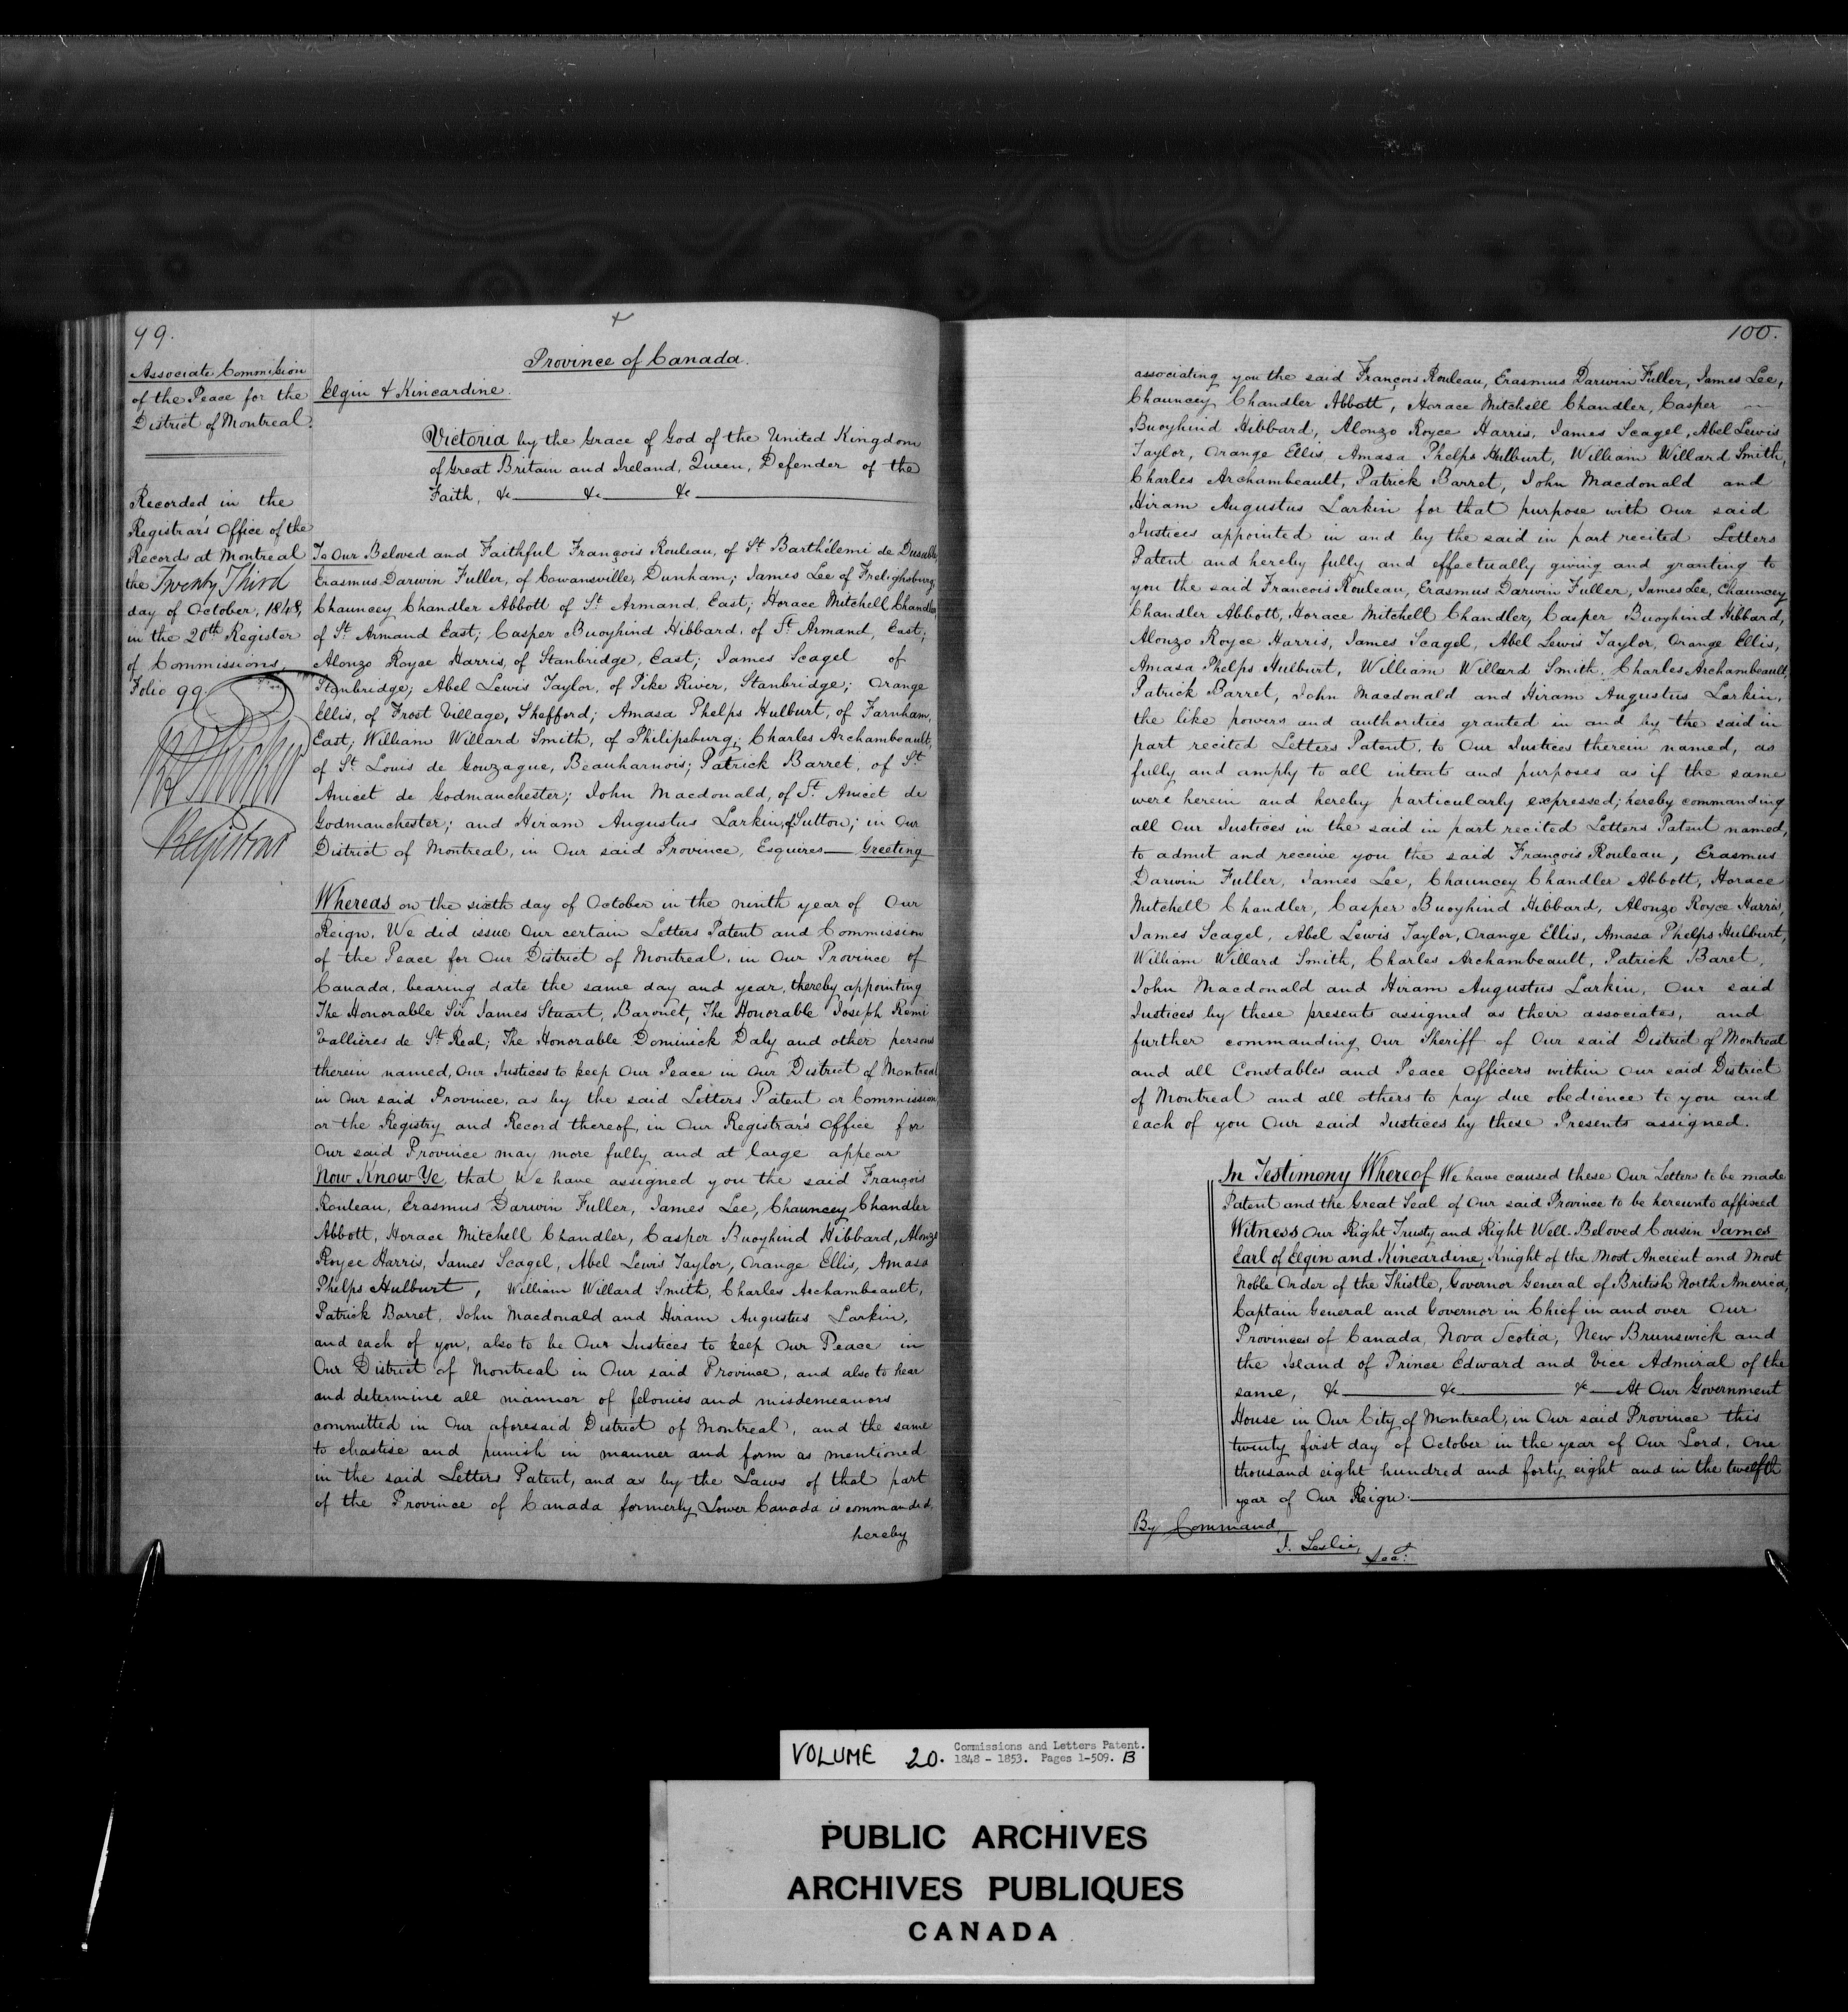 99.
Associate Commission
of the Peace for the
District of Montreal.
Recorded in the
Registrar's Office of the
Records at Montreal
the Twenty Third
day of October, 1848,
in the 20th Register
of Commissions,
Folio 99
Registrar
Province of Canada.
Elgin & Kincardine.
Victoria by the Grace of God of the United Kingdom
of Great Britain and Ireland, Queen, Defender of the
Faith, &c &c &c
To Our Beloved and Faithful François Rouleau, of St Barthélemi de Dusable,
Erasmus Darwin Fuller, of Cowansville, Dunham; James Lee of Frelighsburg,
Chauncey Chandler Abbott of St Armand, East; Horace Mitchell Chandler,
of St Armand East; Casper Buoyhind Hibbard, of St Armand, East;
Alonzo Royce Harris, of Stanbridge, East; James Scagel of
Stanbridge; Abel Lewis Taylor, of Pike River, Stanbridge; Orange
Ellis, of Frost Village, Shefford; Amasa Phelps Hulburt, of Farnham,
East; William Willard Smith, of Philipsburg; Charles Archambeault,
of St Louis de Gonzague, Beauharnois; Patrick Barret, of St
Anicet de Godmanchester; John Macdonald, of St Anicet de
Godmanchester; and Hiram Augustus Larkin, of Sutton; in Our
District of Montreal, in Our said Province, Esquires — Greeting
Whereas on the sixth day of October in the ninth year of Our
Reign, We did issue Our certain Letters Patent and Commission
of the Peace for Our District of Montreal, in Our Province of
Canada, bearing date the same day and year, thereby appointing
The Honorable Sir James Stuart, Baronet, The Honorable Joseph Remi
Vallières de St Real; The Honorable Dominick Daly and other persons
therein named, Our Justices to keep Our Peace in Our District of Montreal
in Our said Province, as by the said Letters Patent or Commission
or the Registry and Record thereof, in Our Registrar's Office for
Our said Province may more fully and at large appear
Now Know Ye, that We have assigned you the said François
Rouleau, Erasmus Darwin Fuller, James Lee, Chauncey Chandler
Abbott, Horace Mitchell Chandler, Casper Buoyhind Hibbard, Alonzo
Royce Harris, James Scagel, Abel Lewis Taylor, Orange Ellis, Amasa
Phelps Hulburt, William Willard Smith, Charles Archambeault,
Patrick Barret, John Macdonald and Hiram Augustus Larkin,
and each of you, also to be Our Justices to keep Our Peace in
Our District of Montreal in Our said Province, and also to hear
and determine all manner of felonies and misdemeanors
committed in Our aforesaid District of Montreal, and the same
to chastise and punish in manner and form as mentioned
in the said Letters Patent, and as by the Laws of that part
of the Province of Canada formerly Lower Canada is commanded,
hereby
100.
associating you the said François Rouleau, Erasmus Darwin Fuller, James Lee,
Chauncey Chandler Abbott, Horace Mitchell Chandler, Casper
Buoyhind Hibbard, Alonzo Royce Harris, James Scagel, Abel Lewis
Taylor, Orange Ellis, Amasa Phelps Hulburt, William Willard Smith,
Charles Archambeault, Patrick Barret, John Macdonald and
Hiram Augustus Larkin for that purpose with Our said
Justices appointed in and by the said in part recited Letters
Patent and hereby fully and effectually giving and granting to
you the said Francois Rouleau, Erasmus Darwin Fuller, James Lee, Chauncey
Chandler Abbott, Horace Mitchell Chandler, Casper Buoyhind Hibbard,
Alonzo Royce Harris, James Scagel, Abel Lewis Taylor, Orange Ellis,
Amasa Phelps Hulburt, William Willard Smith, Charles Archambeault,
Patrick Barret, John Macdonald and Hiram Augustus Larkin,
the like powers and authorities granted in and by the said in
part recited Letters Patent, to Our Justices therein named, as
fully and amply to all intents and purposes as if the same
were herein and hereby particularly expressed; hereby commanding
all Our Justices in the said in part recited Letters Patent named,
to admit and receive you the said François Rouleau, Erasmus
Darwin Fuller, James Lee, Chauncey Chandler Abbott, Horace
Mitchell Chandler, Casper Buoyhind Hibbard, Alonzo Royce Harris,
James Scagel, Abel Lewis Taylor, Orange Ellis, Amasa Phelps Hulburt,
William Willard Smith, Charles Archambeault, Patrick Baret,
John Macdonald and Hiram Augustus Larkin, Our said
Justices by these presents assigned as their associates, and
further commanding Our Sheriff of Our said District of Montreal
and all Constables and Peace Officers within Our said District
of Montreal and all others to pay due obedience to you and
each of you Our said Justices by these Presents assigned.
In Testimony Whereof We have caused these Our Letters to be made
Patent and the Great Seal of Our said Province to be hereunto affixed
Witness Our Right Trusty and Right Well-Beloved Cousin James
Earl of Elgin and Kincardine, Knight of the Most Ancient and Most
Noble Order of the Thistle, Governor General of British North America,
Captain General and Governor in Chief in and over Our
Provinces of Canada, Nova Scotia, New Brunswick and
the Island of Prince Edward and Vice Admiral of the
same, &c &c &c At Our Government
House in Our City of Montreal, in Our said Province this
twenty first day of October in the year of Our Lord, One
thousand eight hundred and forty eight and in the twelfth
year of Our Reign.
By Command,
J. Leslie,
Secy.
VOLUME 20. Commissions and Letters Patent.
1848 - 1853. Pages 1-509. B
PUBLIC ARCHIVES
ARCHIVES PUBLIQUES
CANADA